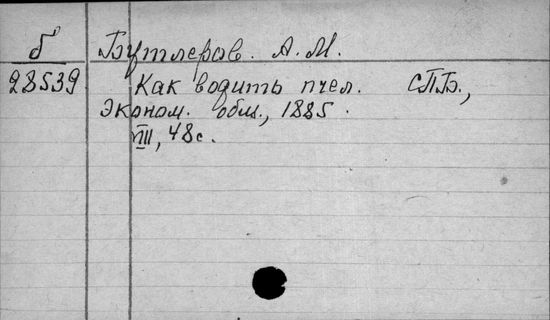 б Бутлеров. А. М.
28539 Как водить пчел. СПБ.,
Эконом. общ., 1885.
VIII, 48 с.